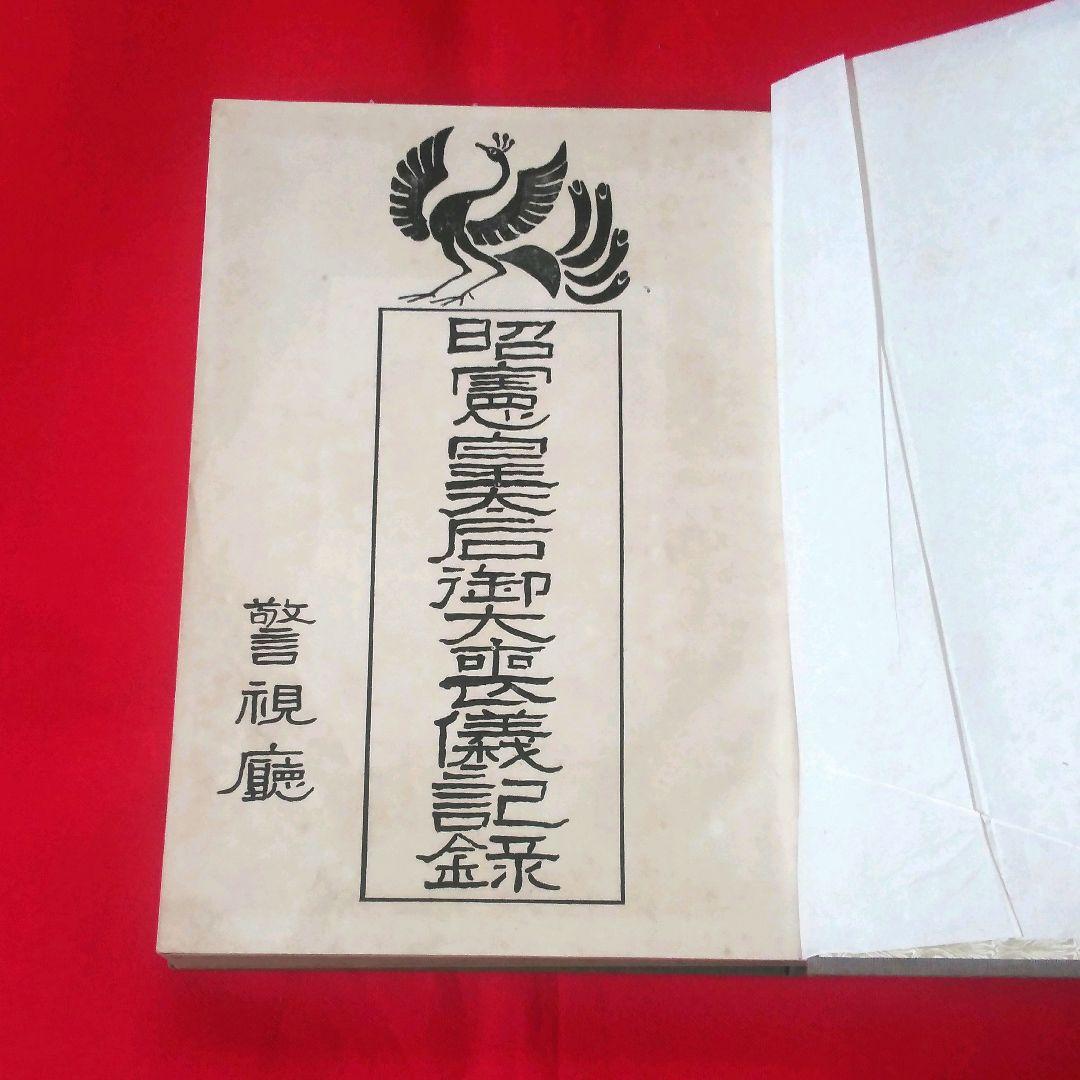 昭憲皇太后御大喪儀記錄
警視廳